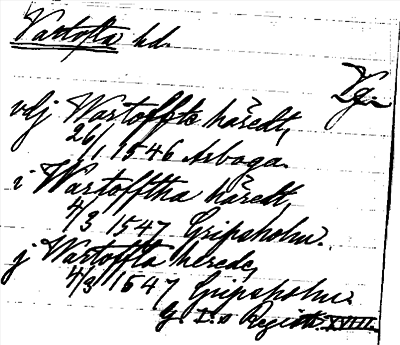 Vartofta hd.
Vg.
vdj Wartoffta häredt,
26/1 1546 Arboga.
i Wartofftha häredt,
4/3 1547 Gripsholm.
j Wartoffta herede,
4/3 1547 Gripsholm.
G. I:s Registr. XVIII.